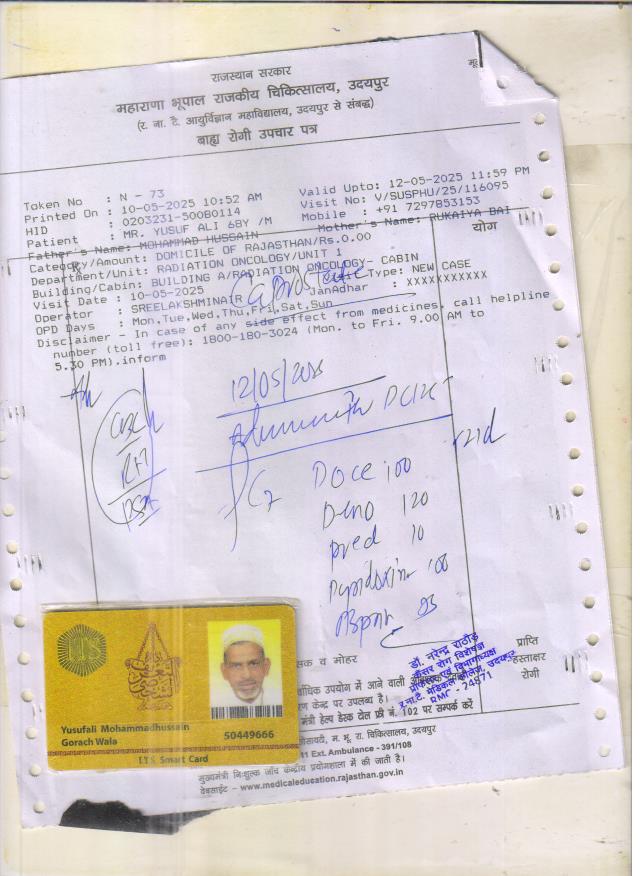 राजस्थान सरकार
महाराणा भूपाल राजकीय चिकित्सालय, उदयपुर
(र. ना. टै. आयुर्विज्ञान महाविद्यालय, उदयपुर से संबद्ध)
बाह्य रोगी उपचार पत्र
Token No : N - 73
Valid Upto: 12-05-2025 11:59 PM
Printed On : 10-05-2025 10:52 AM
Visit No: V/SUSPHU/25/116095
HID : 0203231-50080114
Mobile : +91 7297853153
Patient : MR. YUSUF ALI 68Y /M
Mother's Name: RUKAIYA BAI
Father's Name: MOHAMMAD HUSSAIN
योग
Category/Amount: DOMICILE OF RAJASTHAN/Rs.0.00
Department/Unit: RADIATION ONCOLOGY/UNIT 1
Building/Cabin: BUILDING A/RADIATION ONCOLOGY- CABIN
Visit Date : 10-05-2025
Type: NEW CASE
Operator : SREELAKSHMINAIR
JanAadhar : XXXXXXXXXXX
OPD Days : Mon,Tue,Wed,Thu,Fri,Sat,Sun
Disclaimer - In case of any side effect from medicines, call helpline
number (toll free): 1800-180-3024 (Mon. to Fri. 9.00 AM to
5.30 PM).inform
Ca prostate
12/05/2025
CBC
RFT
PSA
Doce 100
Deno 120
pred 10
डॉ. नरेन्द्र राठौड़
कैंसर रोग विशेषज्ञ
र.ना.टै. मेडिकल कॉलेज, उदयपुर
RMC - 24571
प्राप्ति
हस्ताक्षर
रोगी
व मोहर
उपयोग में आने वाली
केन्द्र पर उपलब्ध है।
मंत्री हेल्प डेस्क टोल फ्री नं. 102 पर सम्पर्क करें
म. भू. रा. चिकित्सालय, उदयपुर
11 Ext. Ambulance - 391/108
मुख्यमंत्री निःशुल्क जाँच केन्द्रीय प्रयोगशाला में की जाती है।
वेबसाईट - www.medicaleducation.rajasthan.gov.in
ITS
Yusufali Mohammadhussain
Gorach Wala
50449666
I.T.S. Smart Card